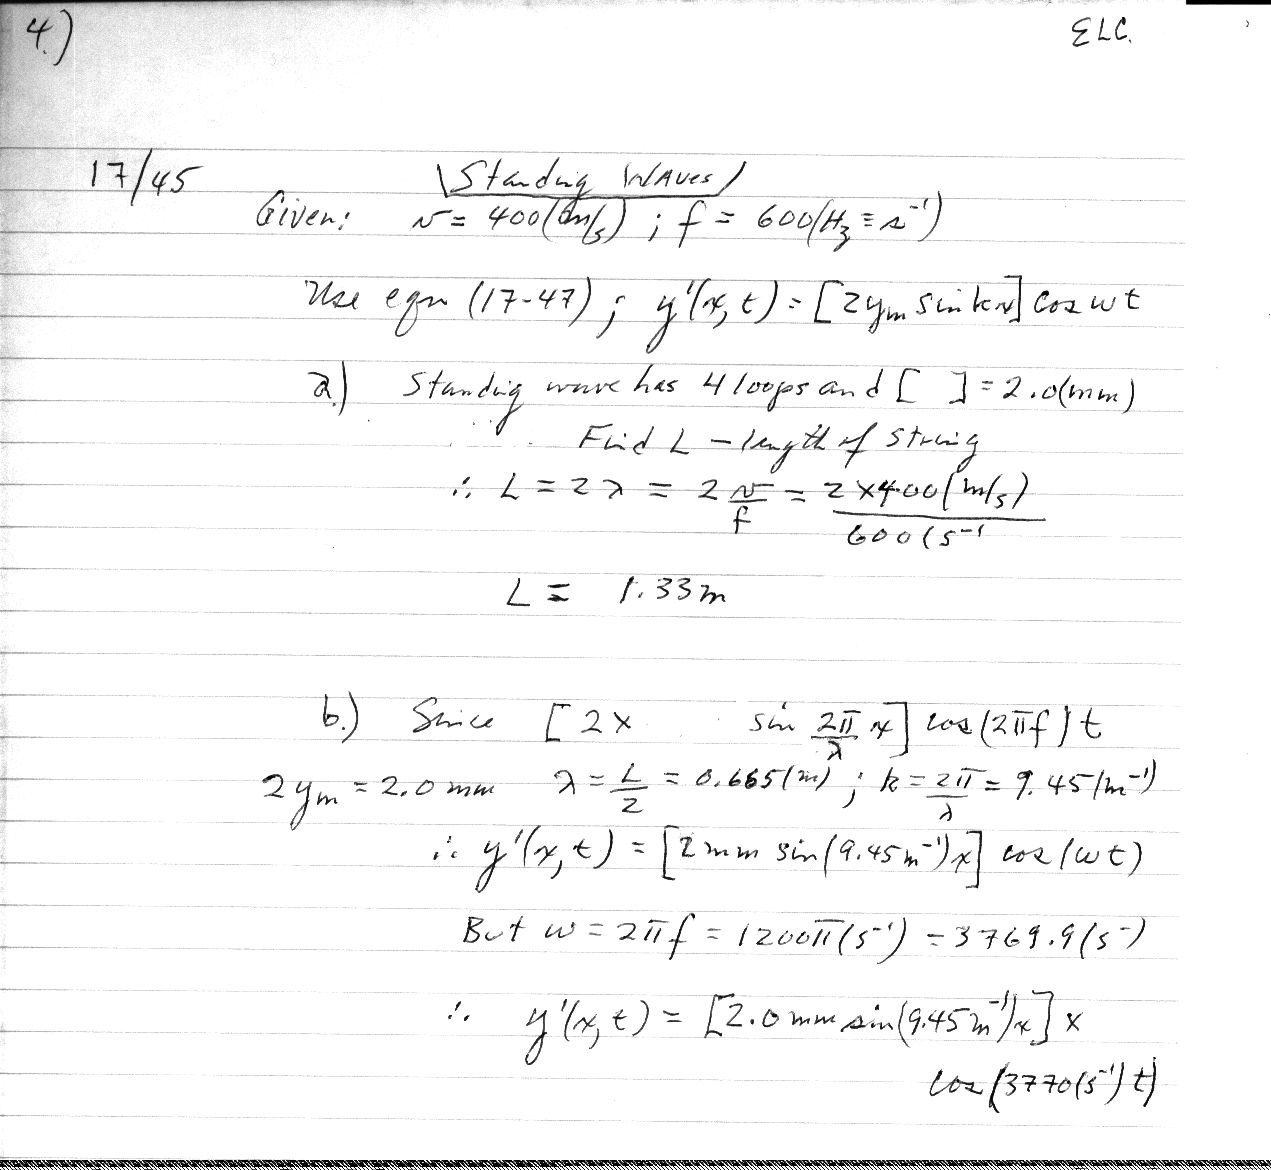 4.)
ELC.
17/45
Standing Waves
Given: v = 400(m/s) ; f = 600(Hz ≡ s⁻¹)
Use eqn (17-47) ; y'(x,t) = [2ym sin kx] cos ωt
a.) Standing wave has 4 loops and [ ] = 2.0(mm)
Find L – length of string
∴ L = 2λ = 2 v/f = 2×400(m/s)/600(s⁻¹
L = 1.33m
b.) Since [2× sin 2π/λ x] cos(2πf)t
2ym = 2.0 mm λ = L/2 = 0.665(m) ; k = 2π/λ = 9.45(m⁻¹)
∴ y'(x,t) = [2mm sin(9.45m⁻¹)x] cos(ωt)
But ω = 2πf = 1200π(s⁻¹) = 3769.9(s⁻)
∴ y'(x,t) = [2.0mm sin(9.45m⁻¹)x] ×
cos(3770(s⁻¹)t)